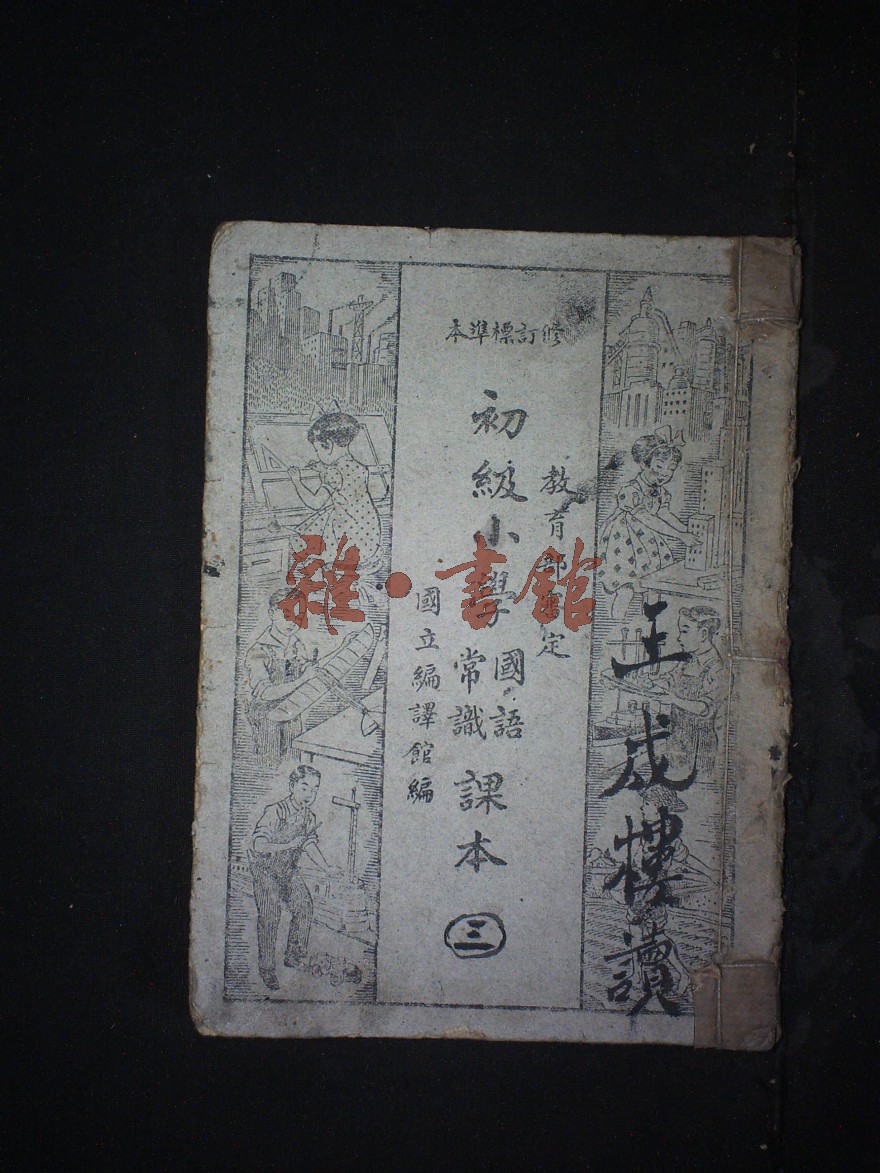 修訂標準本
教育部審定
初級小學國語常識課本
三
國立編譯館編
王成樓讀
雜·書館